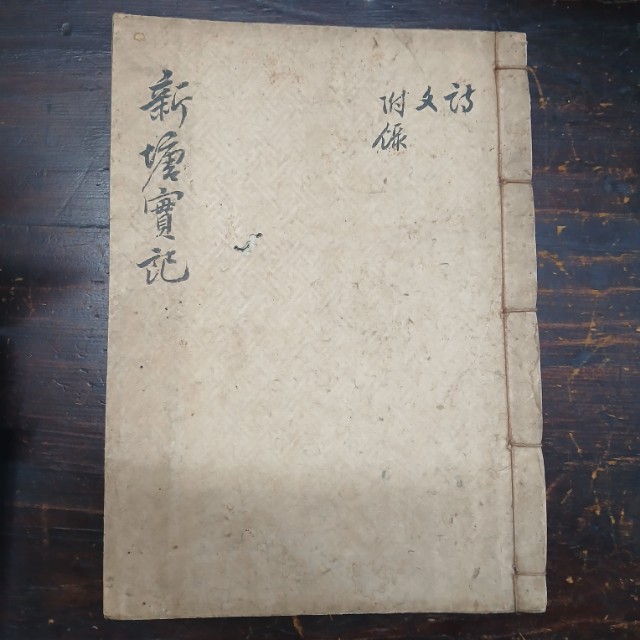 新塘實記
詩
文
附錄